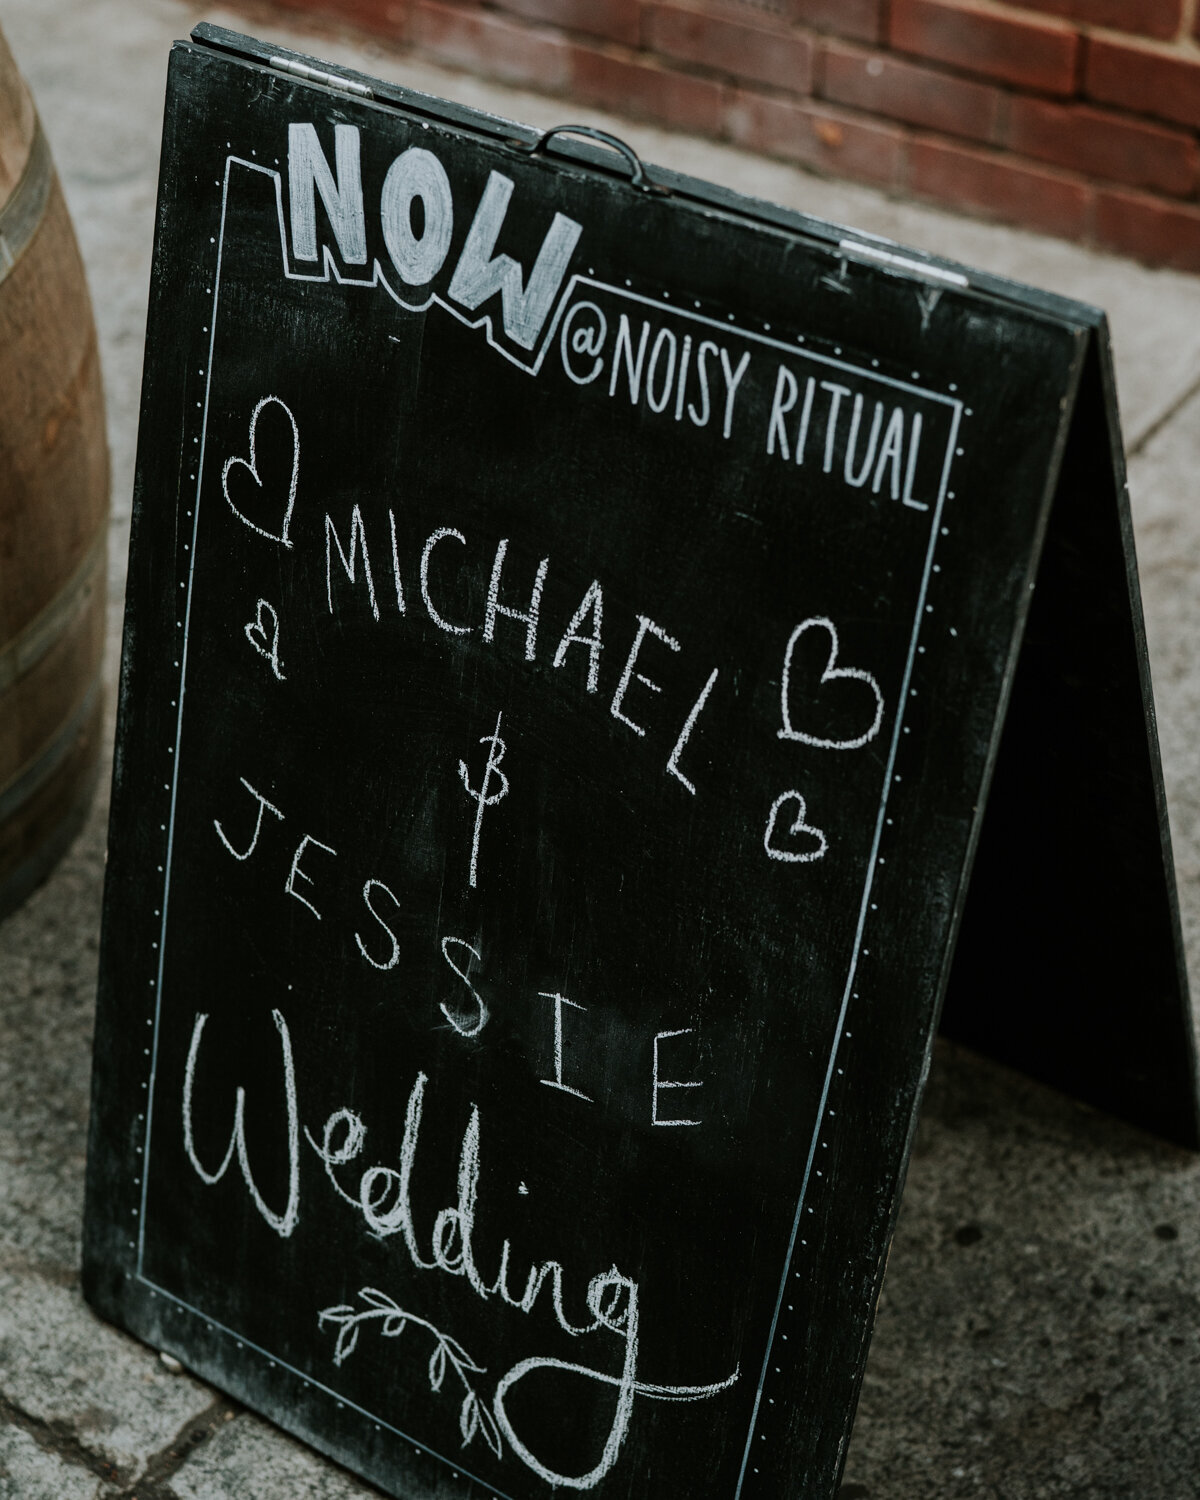 NOW
@NOISY RITUAL
MICHAEL
&
JESSIE
Wedding